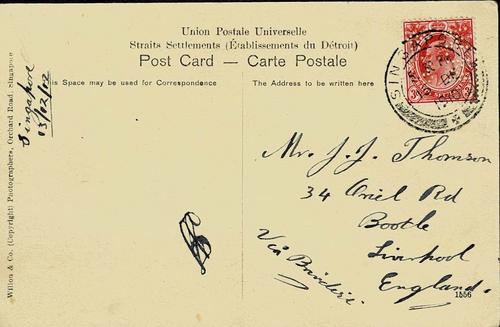 Union Postale Universelle
Straits Settlements (Établissements du Détroit)
Post Card — Carte Postale
This Space may be used for Correspondence
The Address to be written here
Singapore
13/02/02
Wilson & Co. (Copyright) Photographers, Orchard Road, Singapore
SINGAPORE
Mr. J. J. Thomson
34 Oriel Rd
Bootle
Liverpool
England.
Via Brindisi
1556